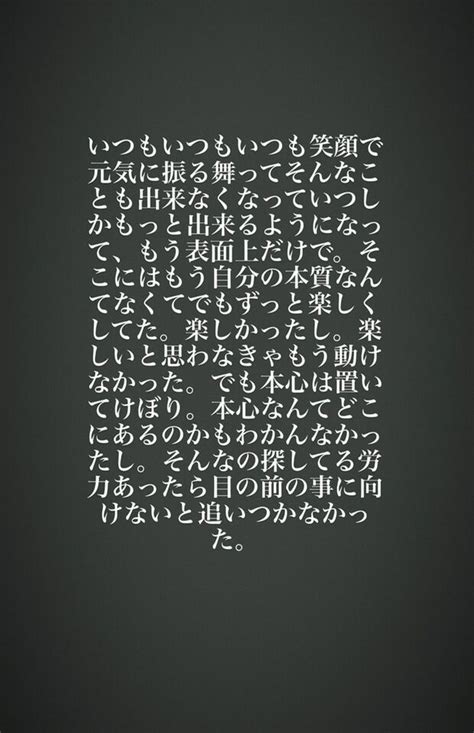 いつもいつもいつも笑顔で
元気に振る舞ってそんなこ
とも出来なくなっていつし
かもっと出来るようになっ
て、もう表面上だけで。そ
こにはもう自分の本質なん
てなくてでもずっと楽しく
してた。楽しかったし。楽
しいと思わなきゃもう動け
なかった。でも本心は置い
てけぼり。本心なんてどこ
にあるのかもわかんなかっ
たし。そんなの探してる労
力あったら目の前の事に向
けないと追いつかなかっ
た。